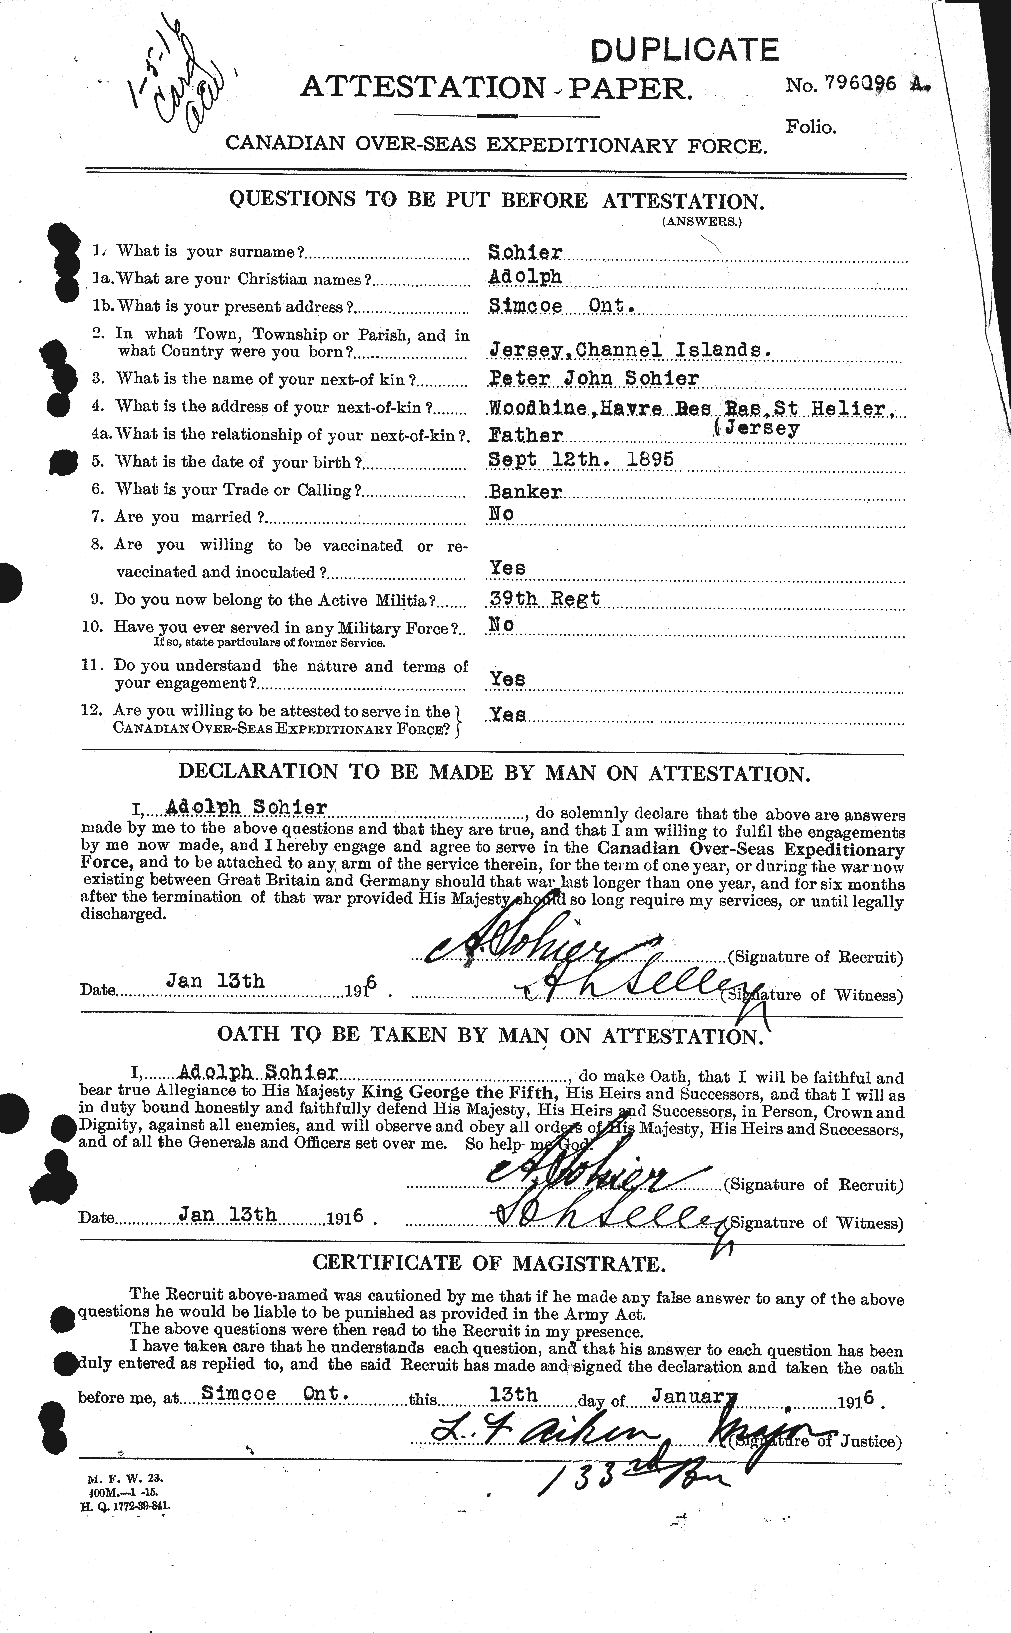 1-5-16
Card
DUPLICATE
ATTESTATION PAPER.
No. 796096 A.
Folio.
CANADIAN OVER-SEAS EXPEDITIONARY FORCE.
QUESTIONS TO BE PUT BEFORE ATTESTATION.
(ANSWERS.)
1. What is your surname? Sohier
1a. What are your Christian names? Adolph
1b. What is your present address? Simcoe Ont.
2. In what Town, Township or Parish, and in
what Country were you born? Jersey, Channel Islands.
3. What is the name of your next-of kin? Peter John Sohier
4. What is the address of your next-of-kin? Woodbine, Havre Des Pas, St Helier,
(Jersey
4a. What is the relationship of your next-of-kin? Father
5. What is the date of your birth? Sept 12th. 1895
6. What is your Trade or Calling? Banker
7. Are you married? No
8. Are you willing to be vaccinated or re-
vaccinated and inoculated? Yes
9. Do you now belong to the Active Militia? 39th Regt
10. Have you ever served in any Military Force? No
If so, state particulars of former Service.
11. Do you understand the nature and terms of
your engagement? Yes
12. Are you willing to be attested to serve in the
CANADIAN OVER-SEAS EXPEDITIONARY FORCE? Yes
DECLARATION TO BE MADE BY MAN ON ATTESTATION.
I, Adolph Sohier, do solemnly declare that the above are answers
made by me to the above questions and that they are true, and that I am willing to fulfil the engagements
by me now made, and I hereby engage and agree to serve in the Canadian Over-Seas Expeditionary
Force, and to be attached to any arm of the service therein, for the term of one year, or during the war now
existing between Great Britain and Germany should that war last longer than one year, and for six months
after the termination of that war provided His Majesty should so long require my services, or until legally
discharged.
A Sohier (Signature of Recruit)
Date Jan 13th 1916. A h Selley (Signature of Witness)
OATH TO BE TAKEN BY MAN ON ATTESTATION.
I, Adolph Sohier, do make Oath, that I will be faithful and
bear true Allegiance to His Majesty King George the Fifth, His Heirs and Successors, and that I will as
in duty bound honestly and faithfully defend His Majesty, His Heirs and Successors, in Person, Crown and
Dignity, against all enemies, and will observe and obey all orders of His Majesty, His Heirs and Successors,
and of all the Generals and Officers set over me. So help me God.
A. Sohier (Signature of Recruit)
Date Jan 13th 1916. h Selley (Signature of Witness)
CERTIFICATE OF MAGISTRATE.
The Recruit above-named was cautioned by me that if he made any false answer to any of the above
questions he would be liable to be punished as provided in the Army Act.
The above questions were then read to the Recruit in my presence.
I have taken care that he understands each question, and that his answer to each question has been
duly entered as replied to, and the said Recruit has made and signed the declaration and taken the oath
before me, at Simcoe Ont. this 13th day of January 1916.
L. F Aiken Major (Signature of Justice)
133rd Bn
M. F. W. 23.
400M.—1-15.
H. Q. 1772-39-841.